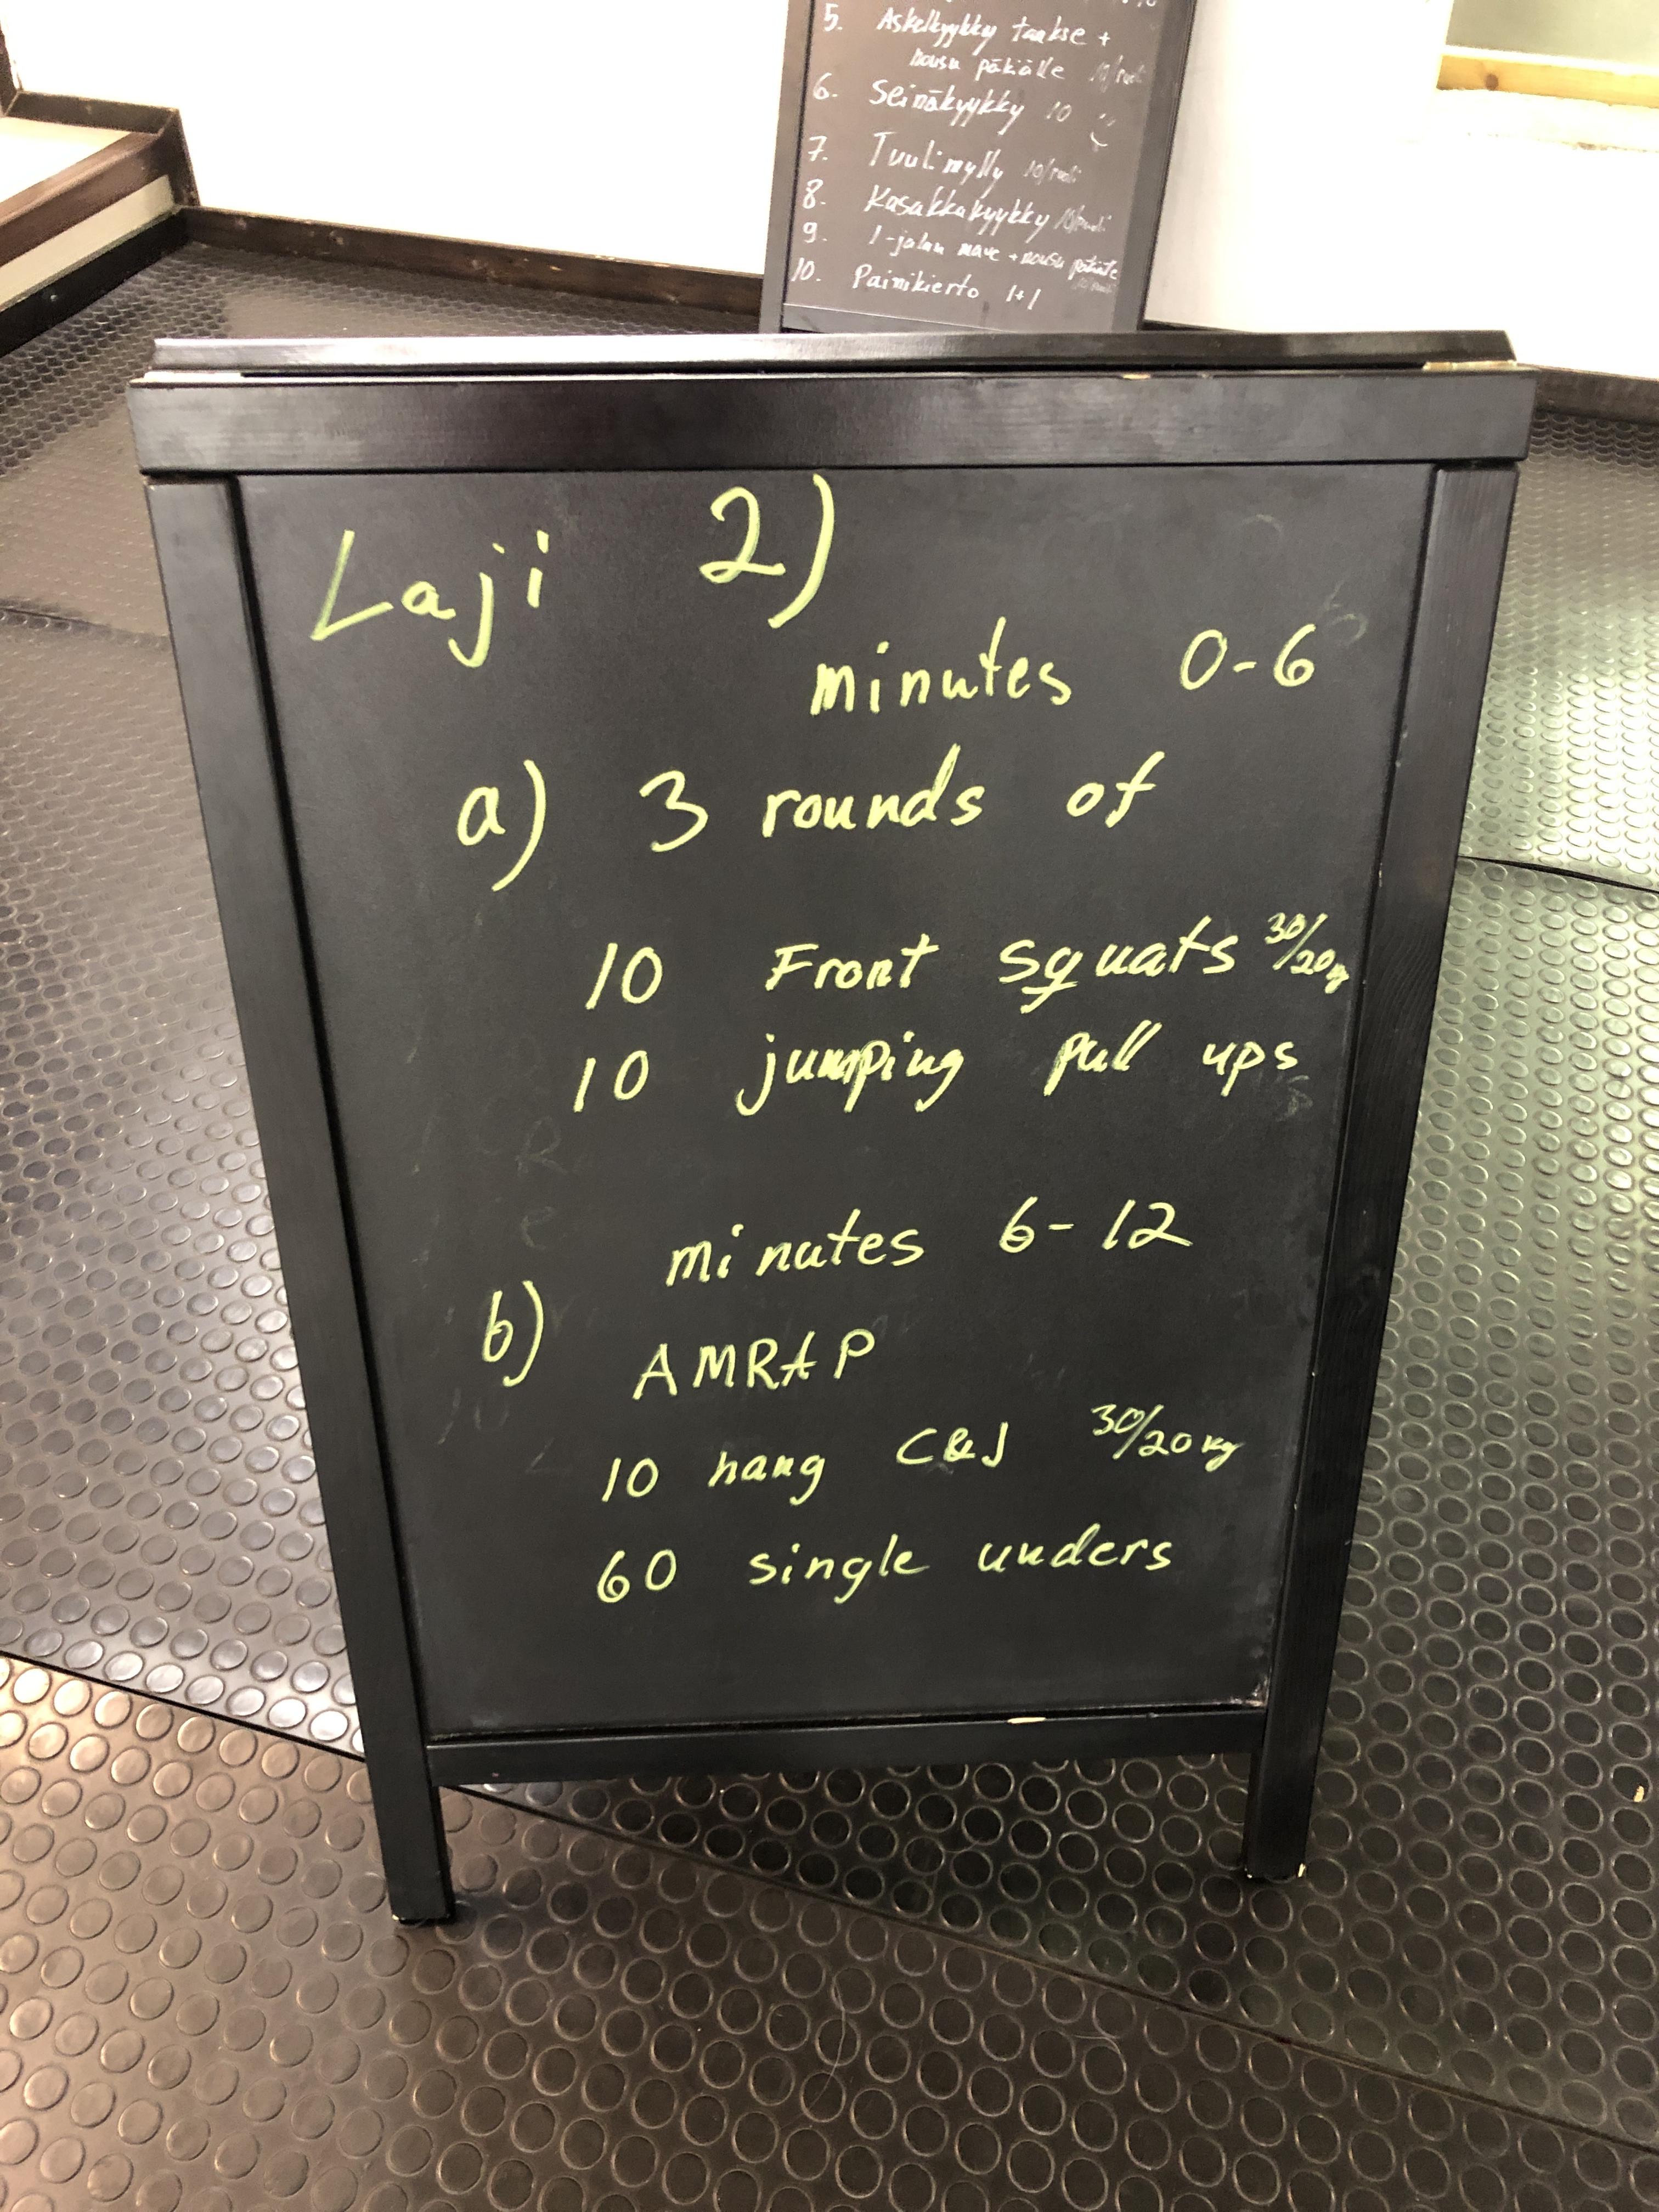 5. Askelkyykky taakse +
nousu päkiälle 10/puoli
6. Seinäkyykky 10
7. Tuulimylly 10/puoli
8. Kasakkakyykky 10/puoli
9. 1-jalan mave + nousu päkiälle
10. Painikierto 1+1
Laji 2)
minutes 0-6
a) 3 rounds of
10 Front squats 30/20kg
10 jumping pull ups
minutes 6-12
b)
AMRAP
10 hang C&J 30/20 kg
60 single unders